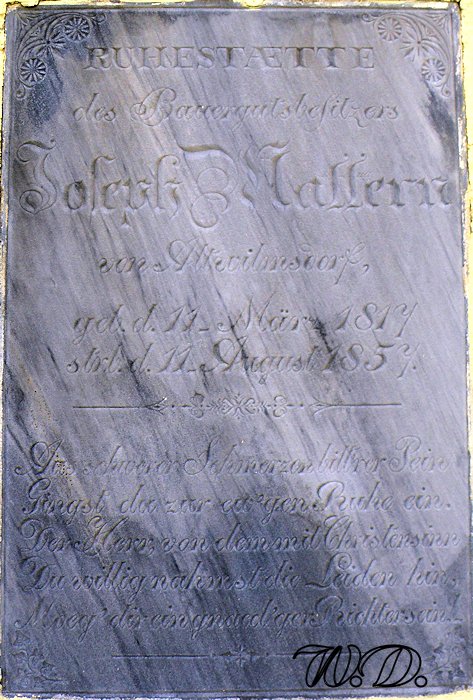 RUHESTÆTTE
des Bauergutsbesitzers
Joseph Nattern
von Altwilmsdorf,
geb. d. 11. März 1817
strb. d. 11. August 1857.
Aus schwerer Schmerzen bittrer Pein
Gingst du zur ew'gen Ruhe ein.
Der Herr, von dem mit Christensinn
Du willig nahmst die Leiden hin,
Moeg' dir ein gnaed'ger Richter sein!
W.D.